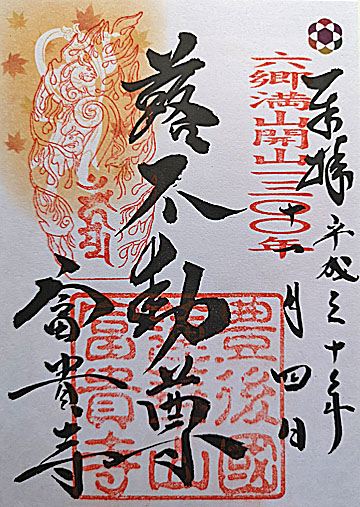 奉拝 平成三十年
十一月四日
六郷満山開山一三〇〇年
蕗不動尊
富貴寺
豐後國
山
富貴寺